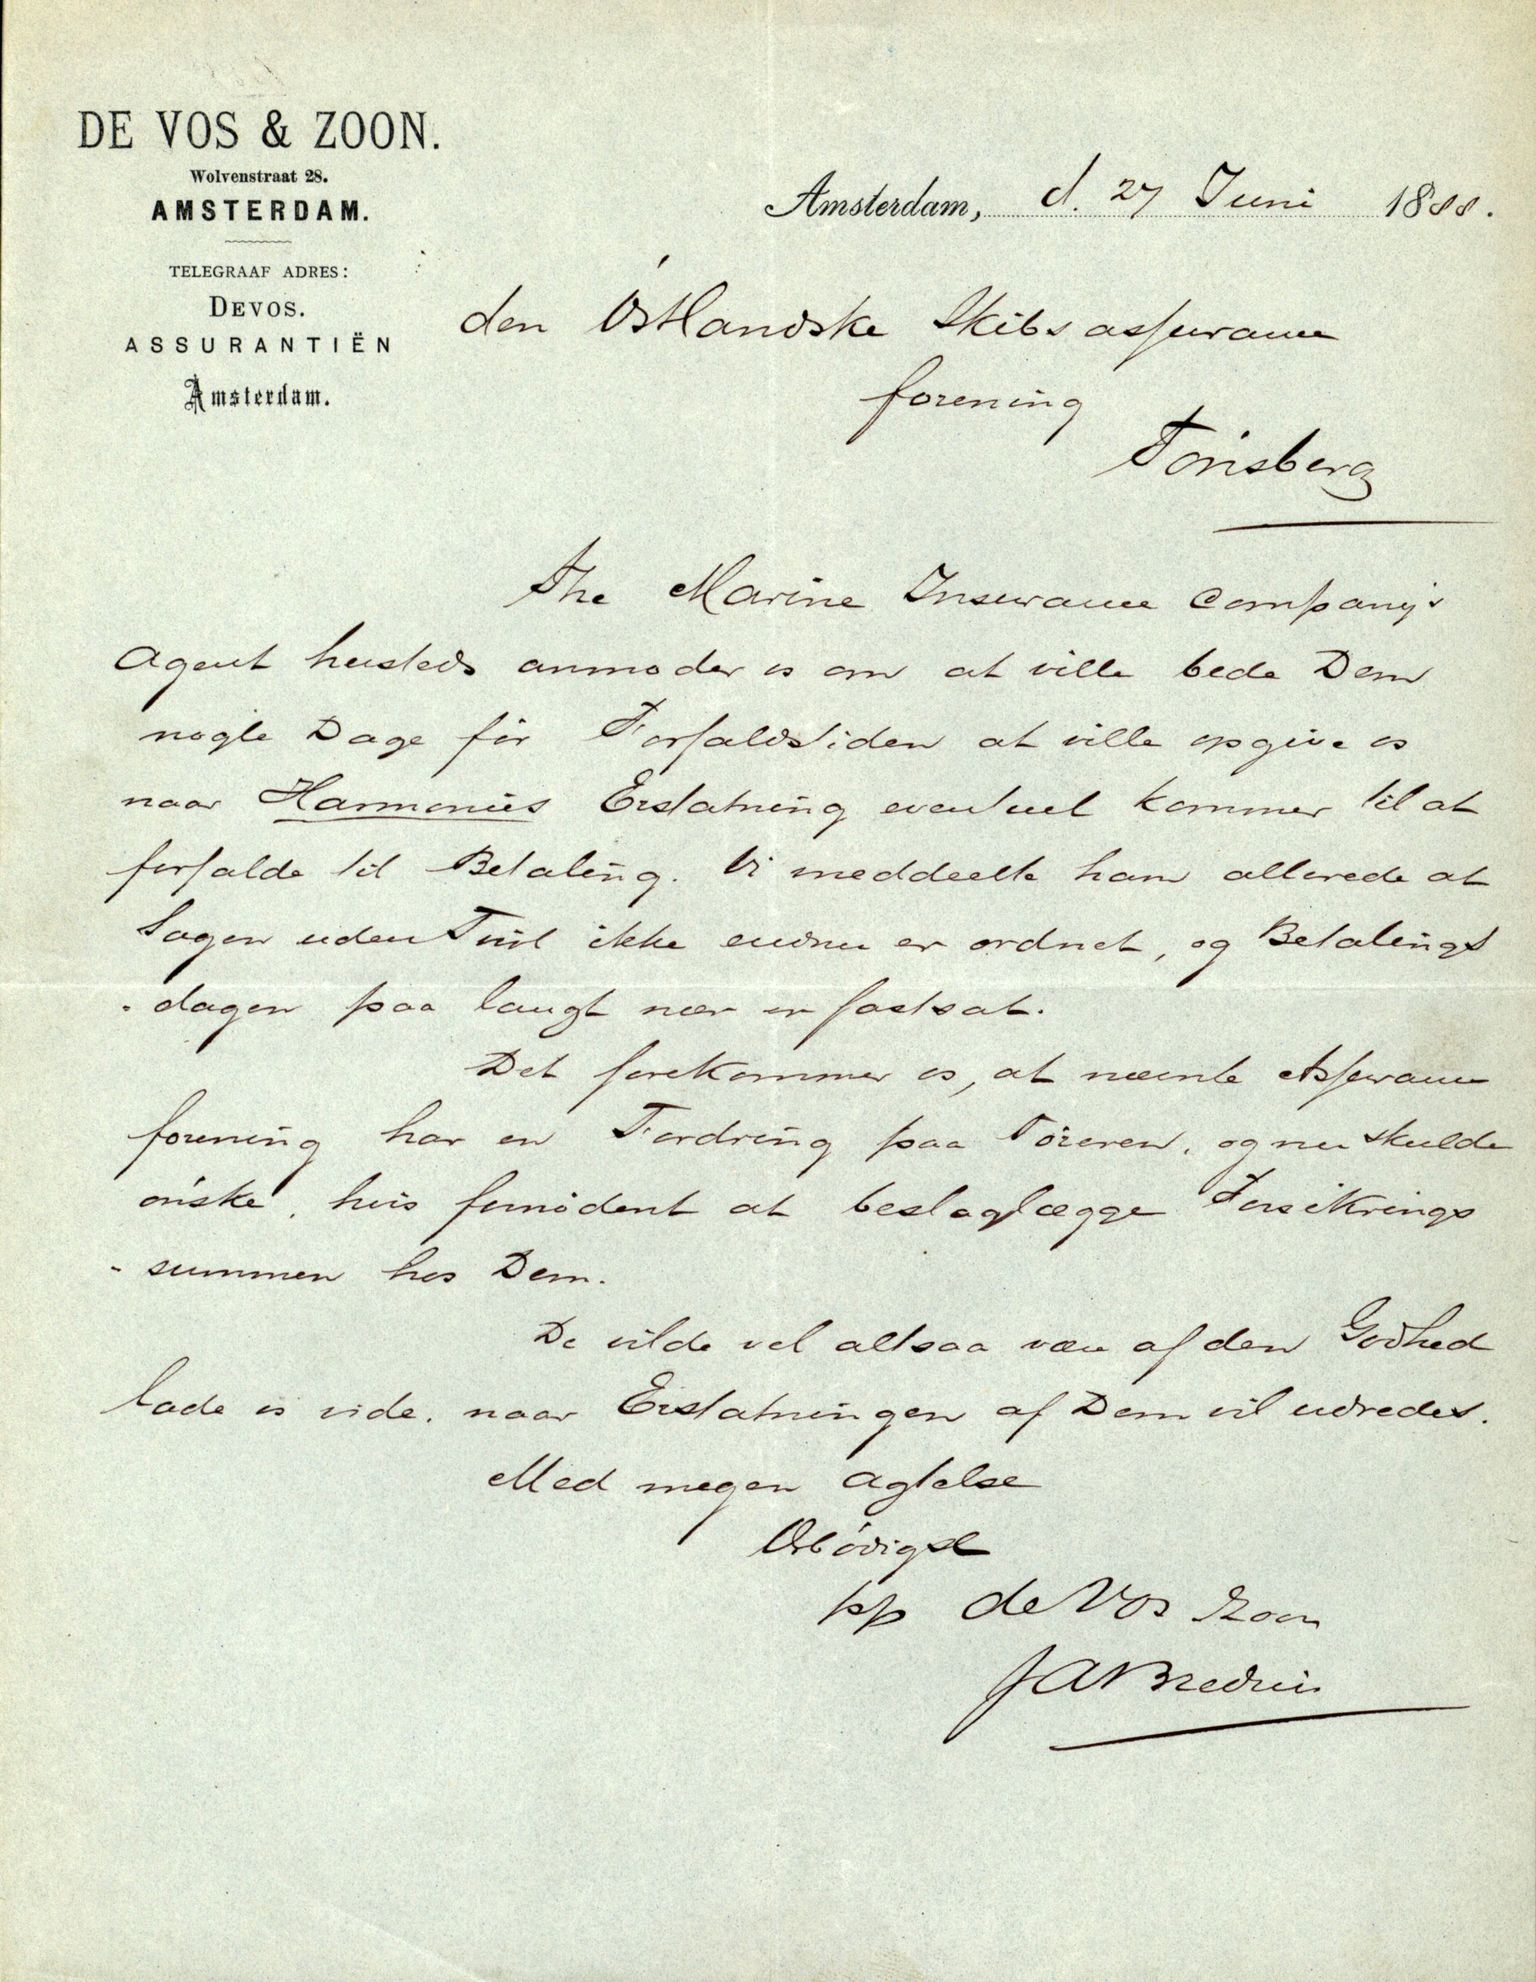 DE VOS & ZOON.
Wolvenstraat 28.
AMSTERDAM.
TELEGRAAF ADRES:
DEVOS.
ASSURANTIËN
Amsterdam.
Amsterdam, d. 27 Juni 1888.
den Östlandske Skibsassurance
forening
Tönsberg
The Marine Insurance Company's
Agent hersteds anmoder os om at ville bede Dem
nogle Dage för Forfaldstiden at ville opgive os
naar Harmonies Erstatning eventuel kommer til at
forfalde til Betaling. Vi meddeelte ham allerede at
Sagen uden Tvil ikke endnu er ordnet, og Betalings
-dagen paa langt nær er fastsat.
Det forekommer os, at nævnte Assurance
forening har en Fordring paa Föreren, og nu skulde
önske, hvis fornödent at beslaglægge Forsikrings
-summen hos Dem.
De vilde vel altsaa være af den Godhed
lade os vide, naar Erstatningen af Dem vil udredes.
Med megen Agtelse
Ærbödigst
pp de Vos & Zoon